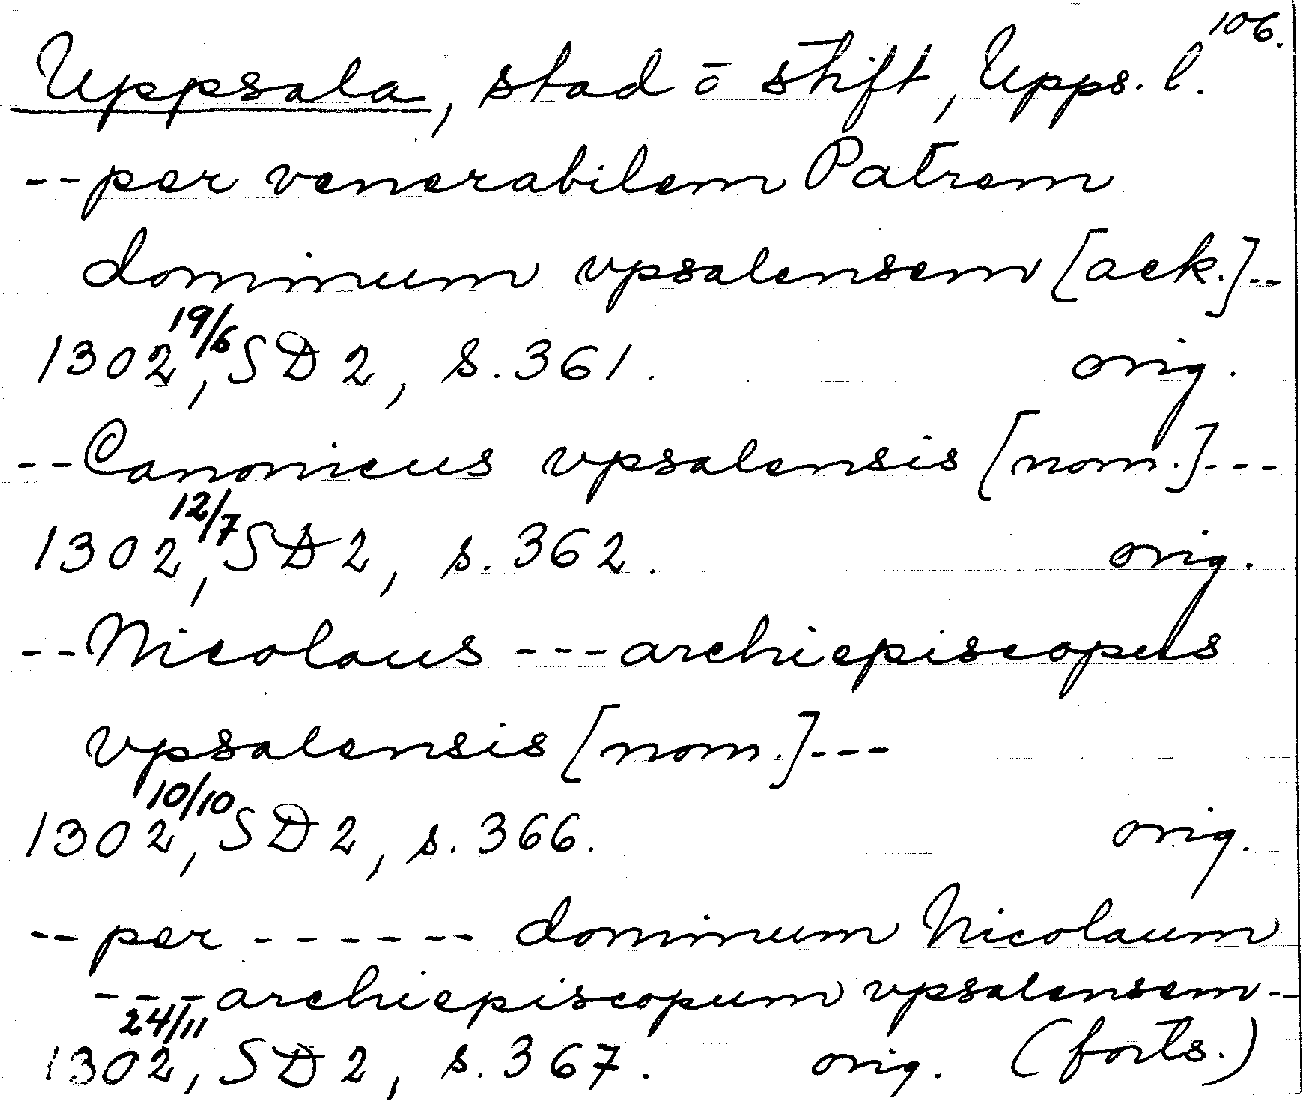 106.
Uppsala, stad ō stift, Upps. l.
--per venerabilem Patrem
dominum vpsalensem [ack.]--
1302 19/6, SD 2, s. 361. orig.
--Canonicus vpsalensis [nom.]---
1302 12/7, SD 2, s. 362. orig.
--Nicolaus ---archiepiscopus
vpsalensis [nom.]---
1302 10/10, SD 2, s. 366. orig.
--per ------ dominum Nicolaum
---archiepiscopum vpsalensem--
1302 24/11, SD 2, s. 367. orig. (forts.)